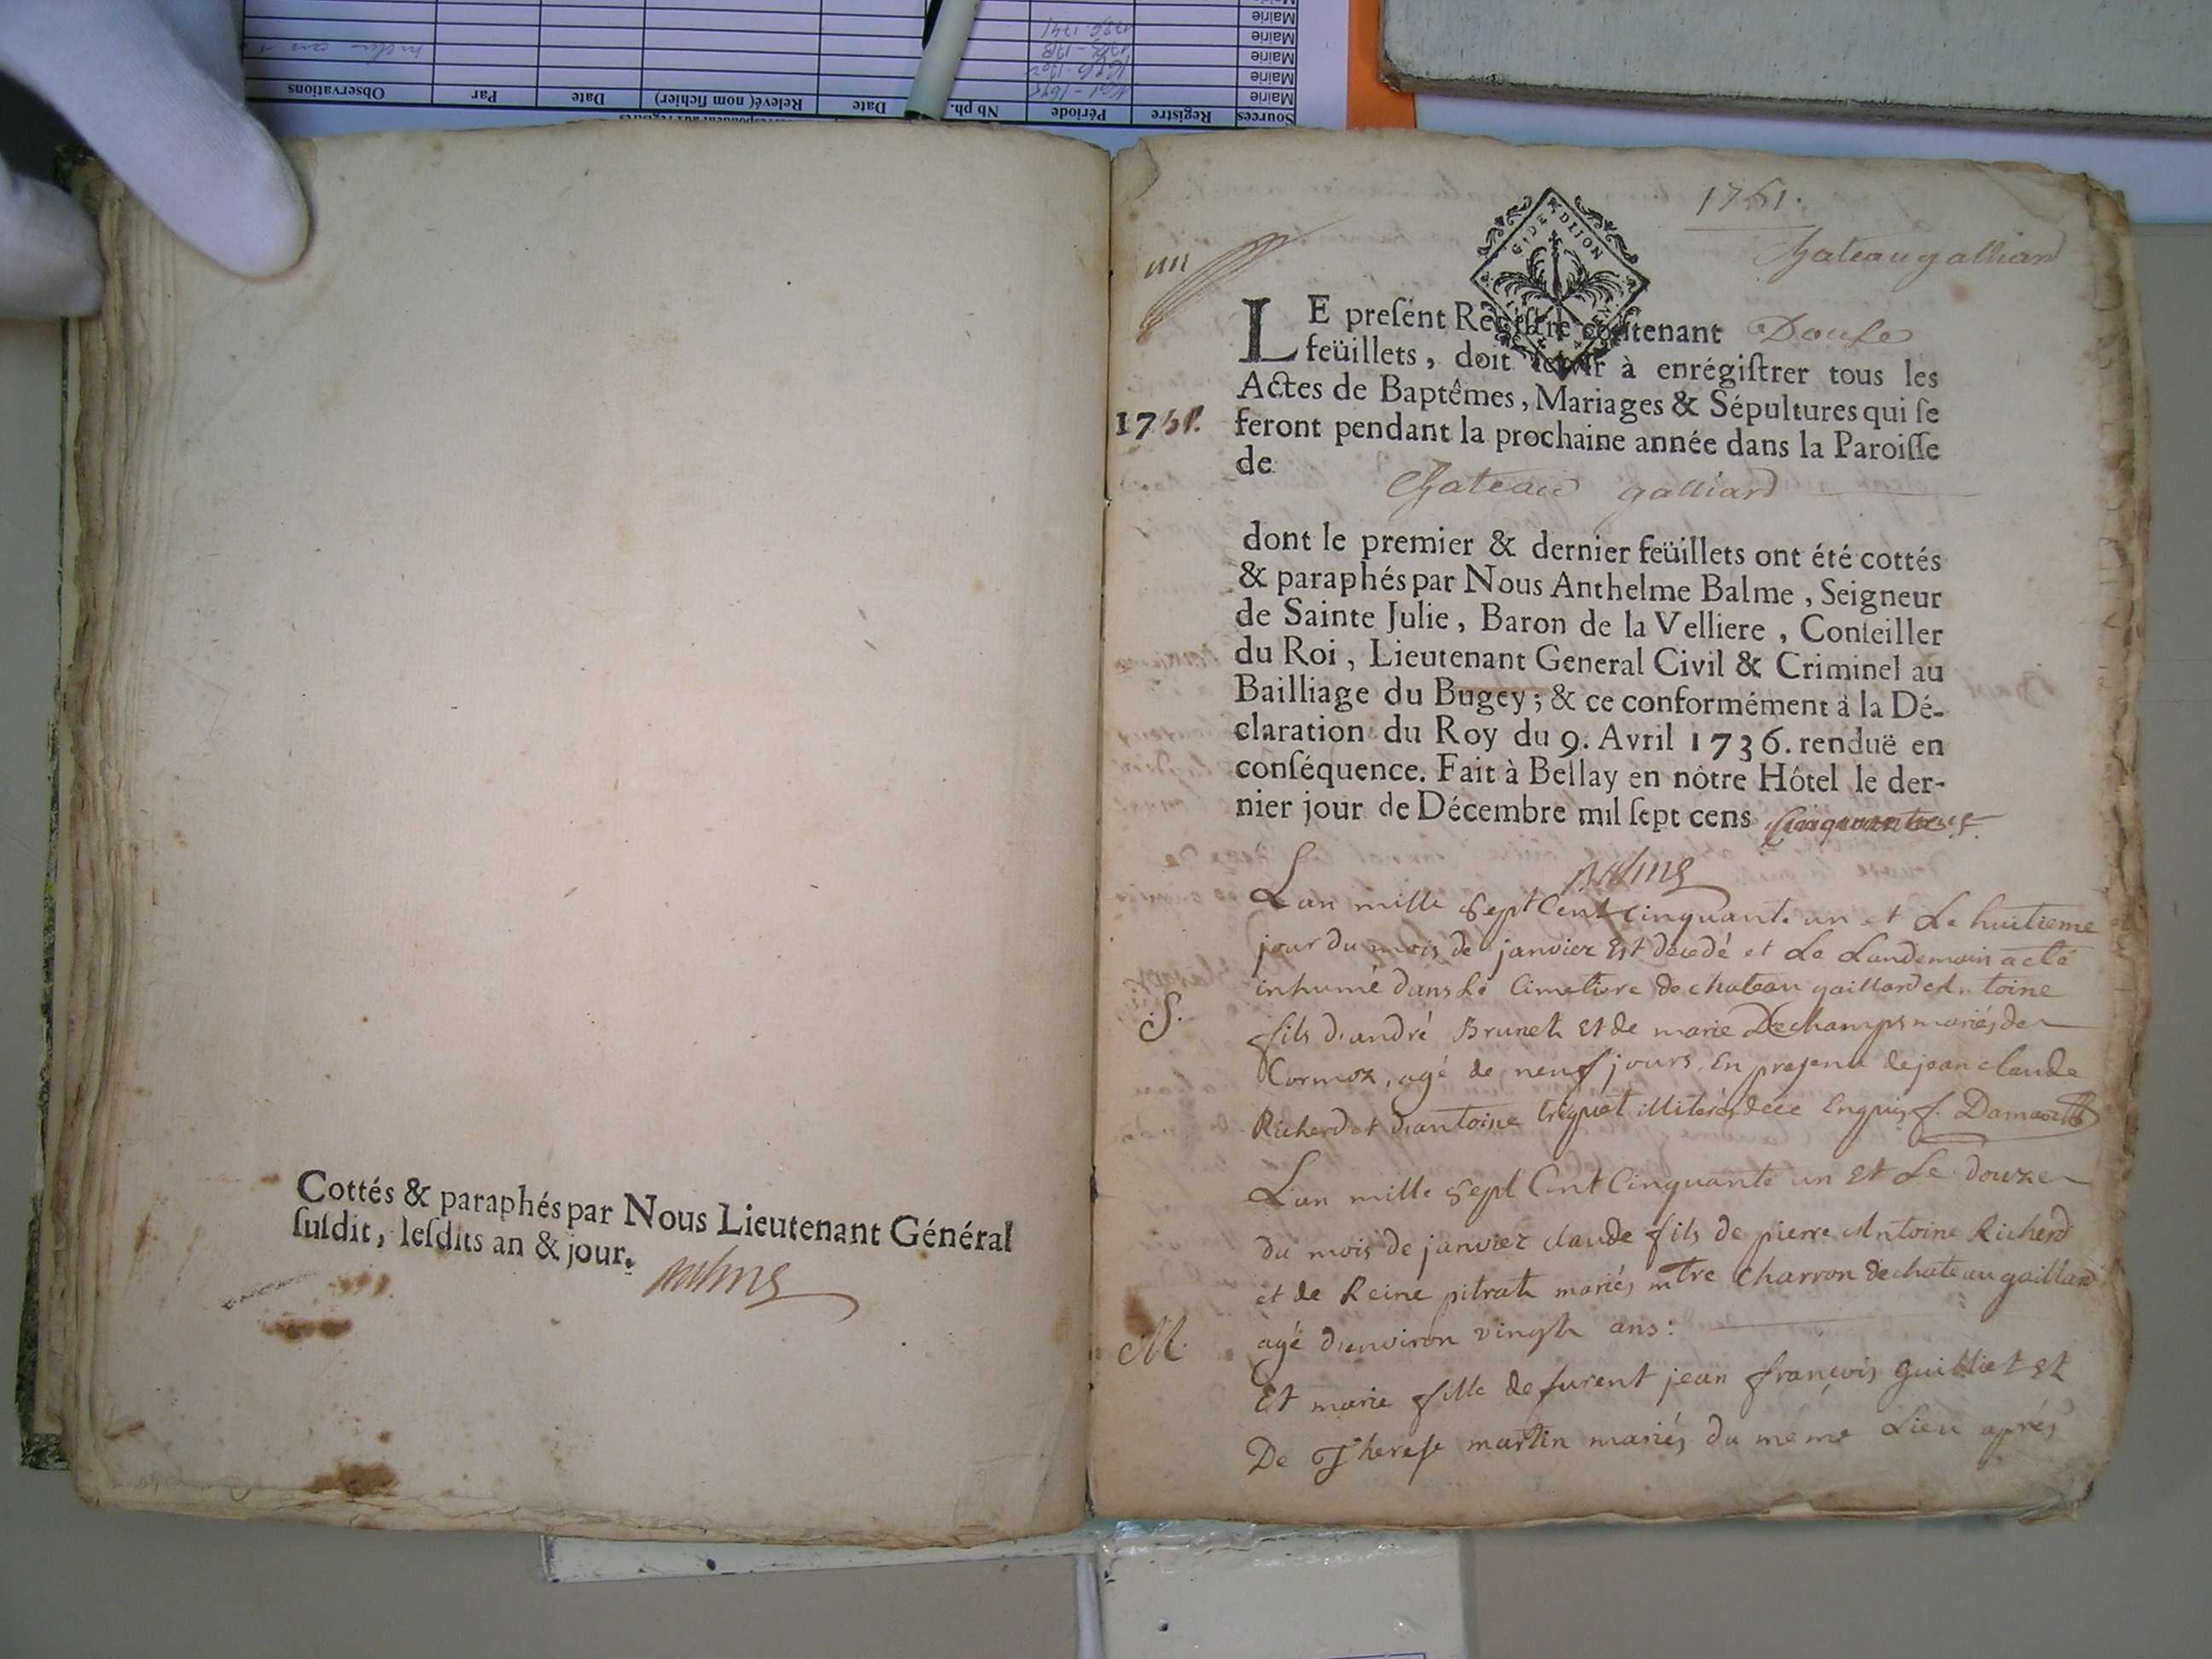 Sources Registre Période Nb ph. Date Relevé (nom fichier) Date Par Observations
Mairie
Mairie
Mairie
Mairie 1736-1741
Mairie
Cottés & paraphés par Nous Lieutenant Général
ſuſdit, leſdits an & jour.
1751.
Chateaugalliard
G. DE DIJON
LE preſent Regiſtre contenant Douſe
feüillets, doit ſervir à enrégiſtrer tous les
Actes de Baptêmes, Mariages & Sépultures qui ſe
1751.
feront pendant la prochaine année dans la Paroiſſe
de
Chateau galliard
dont le premier & dernier feüillets ont été cottés
& paraphés par Nous Anthelme Balme, Seigneur
de Sainte Julie, Baron de la Velliere, Conſeiller
du Roi, Lieutenant General Civil & Criminel au
Bailliage du Bugey; & ce conformément à la Dé-
claration du Roy du 9. Avril 1736. renduë en
conſéquence. Fait à Bellay en nôtre Hôtel le der-
nier jour de Décembre mil ſept cens Cinquante
Balme
Lan mille sept Cent cinquante un et Le huitieme
jour du mois de janvier Est decedé et Le Landemain a eté
inhumé dans Le Cimetiere de chateau gaillard antoine
S.
fils d'andré Brunet Et de marie Dechamps mariés de
Cormoz, agé de neuf jours, En presence de jean claude
Richerd et d'antoine triquet illiterés de ce Enquis f.
Lan mille sept Cent Cinquante un Et Le douze
du mois de janvier claude fils de pierre Antoine Richerd
et de Reine pitrat mariés mtre Charron de chateaugaillard
M.
agé d'environ vingt ans:
Et marie fille de furent jean françois guilliet Et
De Therese martin mariés du meme Lieu aprés